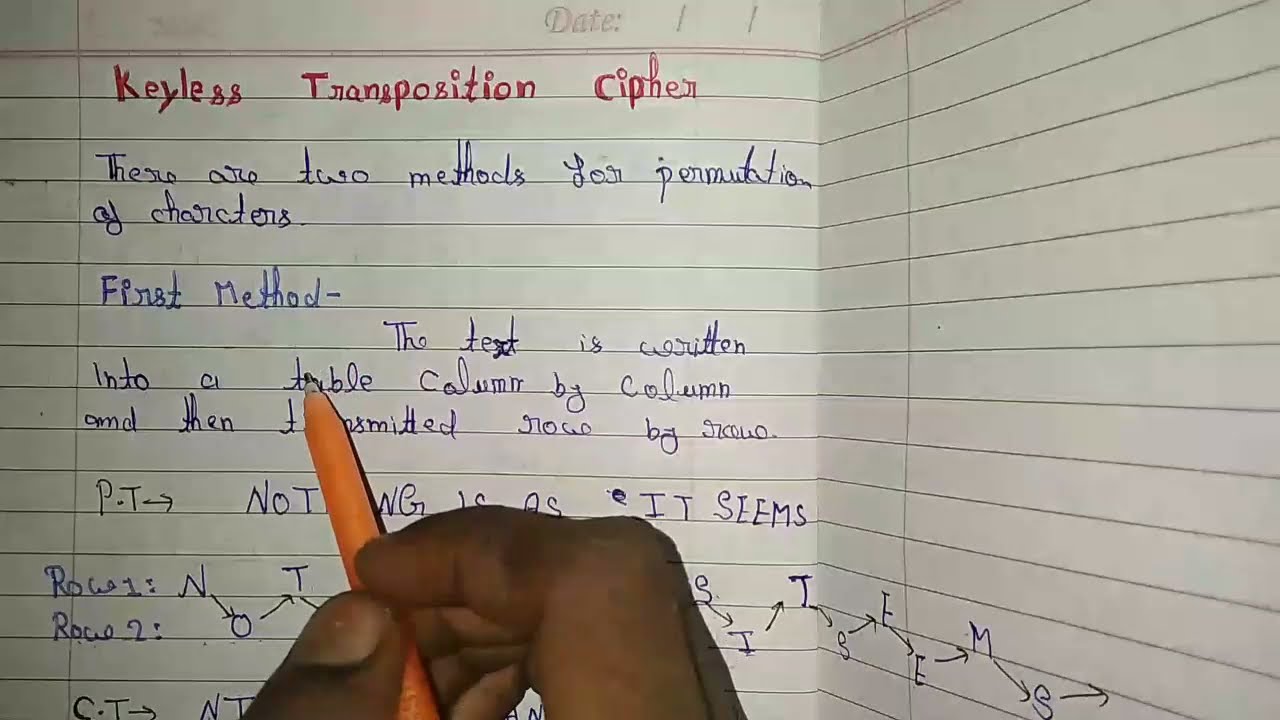 Date: / /
Keyless Transposition Cipher
There are two methods for permutation
of charcters.
First Method-
The text is written
Into a table Column by Column
and then t nsmitted row by row.
P.T→ NOT NG IS AS IT SEEMS
Row 1: N T S T E M
Row 2: O I S E S
C.T→ NT AN